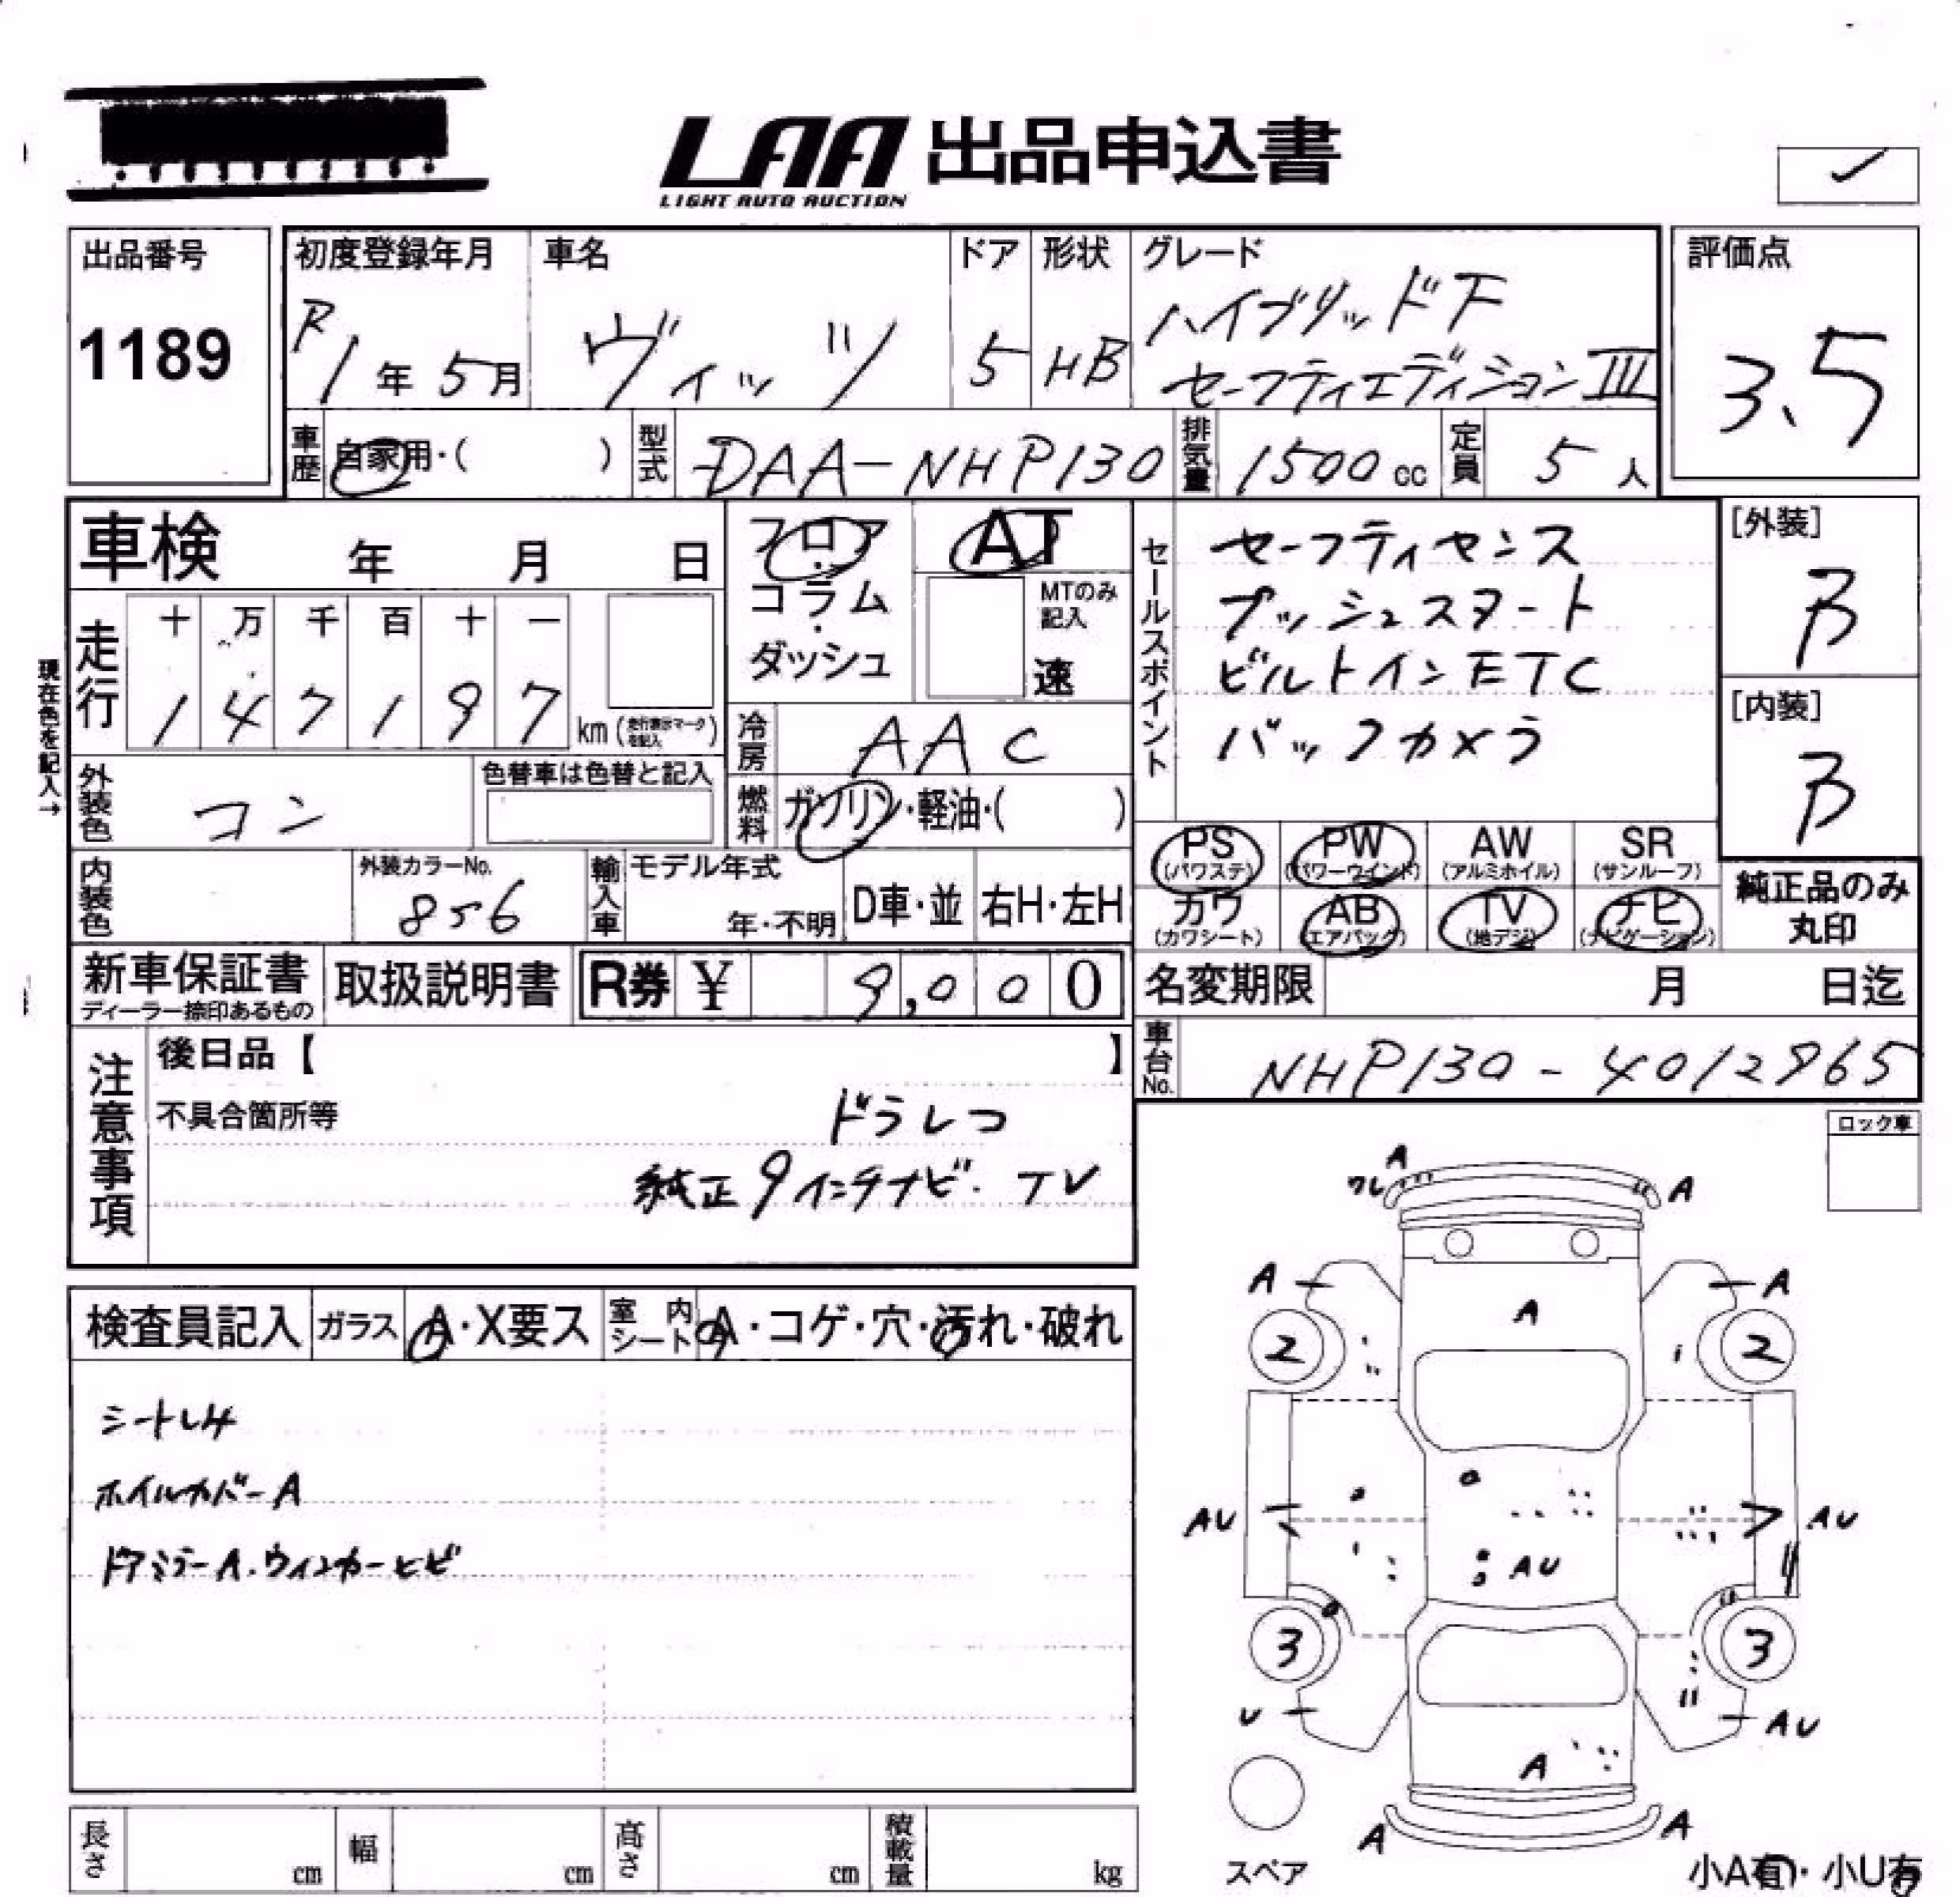 LAA 出品申込書
LIGHT AUTO AUCTION
出品番号
1189
初度登録年月
R1年5月
車名
ヴィッツ
ドア
5
形状
HB
グレード
ハイブリッドF
セーフティエディションIII
評価点
3.5
車歴
自家用・( )
型式
DAA-NHP130
排気量
1500cc
定員
5人
車検 年 月 日
フロア
コラム
・
ダッシュ
AT
MTのみ
記入
速
セールスポイント
セーフティセンス
プッシュスタート
ビルトインETC
バックカメラ
[外装]
B
[内装]
B
現在色を記入→
走行
十 万 千 百 十 一
1 4 7 1 9 7
km(走行表示マークを記入)
冷房
AAC
外装色
コン
色替車は色替と記入
燃料
ガソリン・軽油・( )
PS
(パワステ)
PW
(パワーウインド)
AW
(アルミホイル)
SR
(サンルーフ)
内装色
外装カラーNo.
856
輸入車
モデル年式
年・不明
D車・並
右H・左H
カワ
(カワシート)
AB
(エアバック)
TV
(地デジ)
ナビ
(ナビゲーション)
純正品のみ
丸印
新車保証書
ディーラー捺印あるもの
取扱説明書
R券 ¥ 9,000
名変期限 月 日迄
車台No.
NHP130-4012965
注意事項
後日品【 】
不具合箇所等
ドラレコ
純正9インチナビ・TV
ロック車
検査員記入
ガラス
A・X要ス
室内シート
A・コゲ・穴・汚れ・破れ
シートシミ
ホイルカバーA
ドアミラーA.ウィンカーヒビ
A
ワレ
A
A
A
A
2
2
AU
AU
AU
3
3
U
AU
A
A
A
スペア
小A有・小U有
長さ cm
幅 cm
高さ cm
積載量 kg